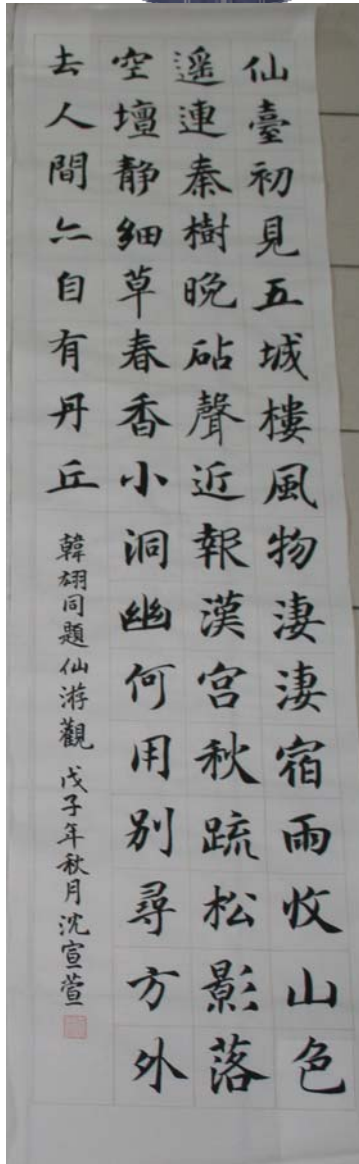 仙臺初見五城樓風物淒淒宿雨收山色
遥連秦樹晚砧聲近報漢宮秋疏松影落
空壇静細草春香小洞幽何用別尋方外
去人間亦自有丹丘
韓翃同題仙游觀 戊子年秋月沈宣萱